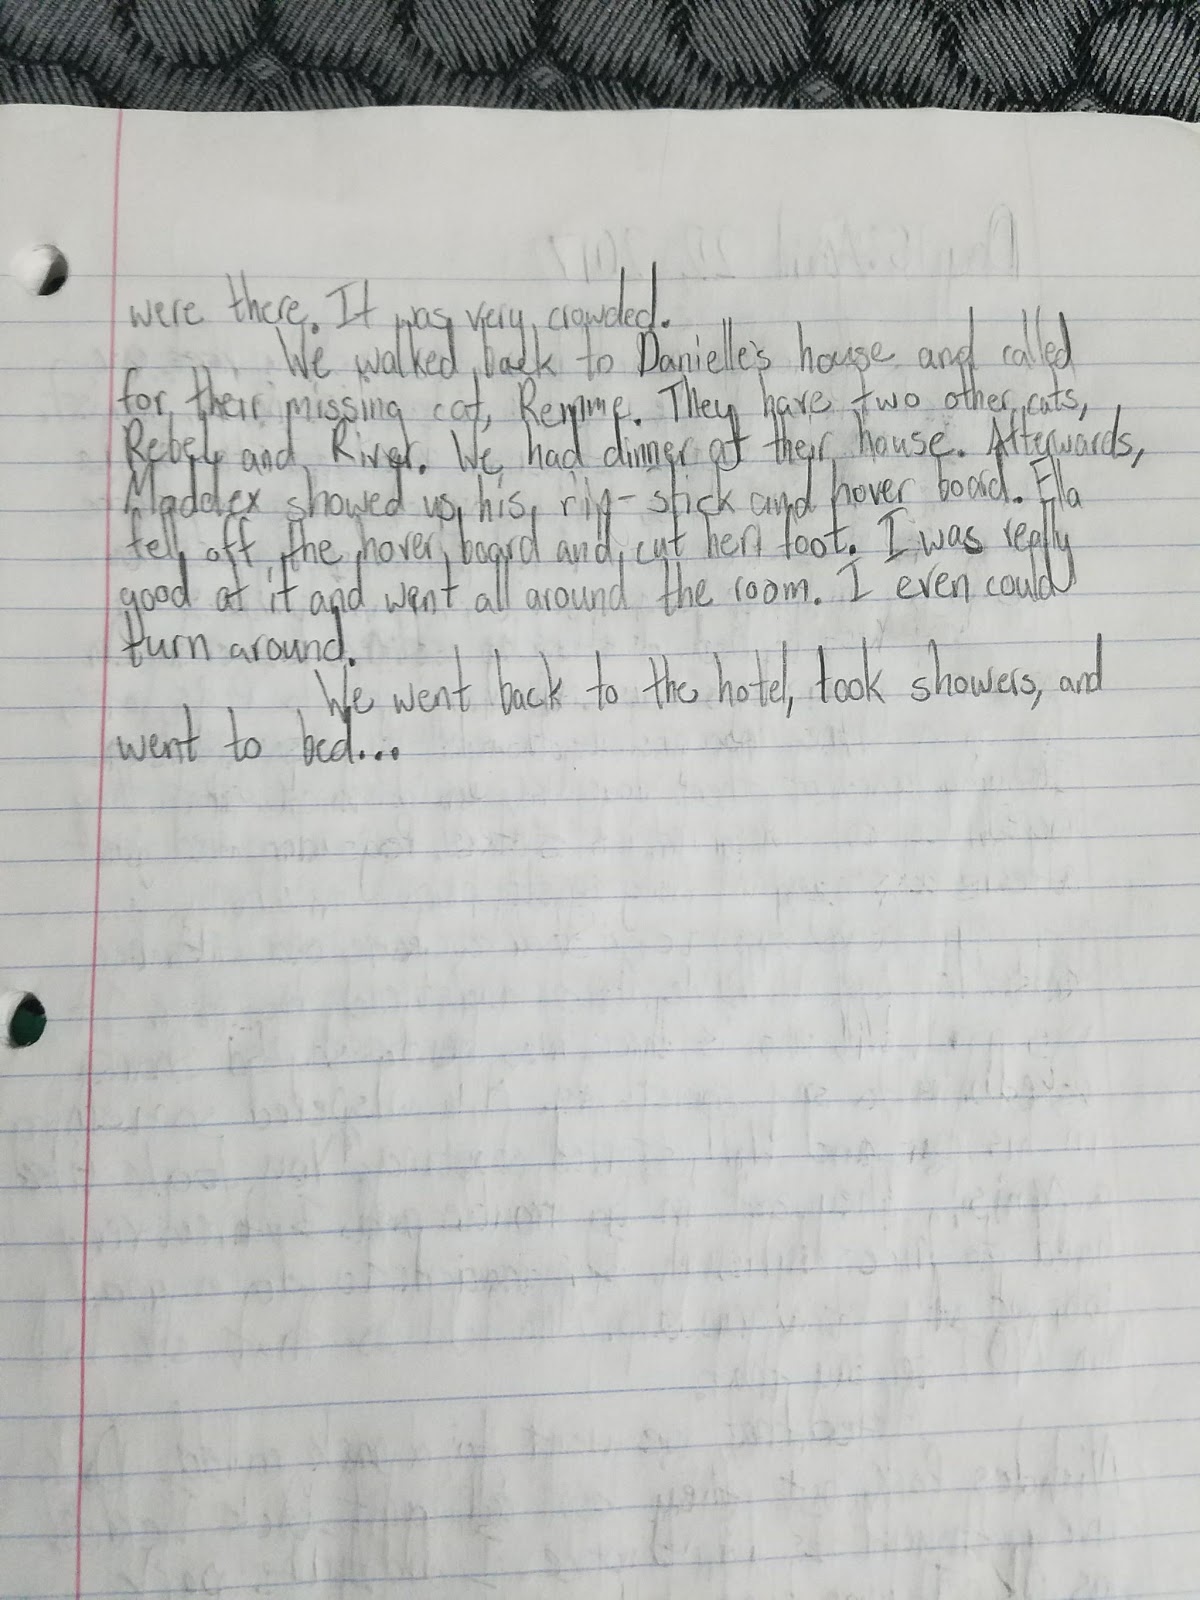 were there. It was very crowded.
We walked back to Danielle's house and called
for their missing cat, Remme. They have two other cats,
Rebel, and River. We had dinner at their house. Afterwards,
Maddex showed us his rip-stick and hover board. Ella
fell off the hover board and cut her foot. I was really
good at it and went all around the room. I even could
turn around.
We went back to the hotel, took showers, and
went to bed...